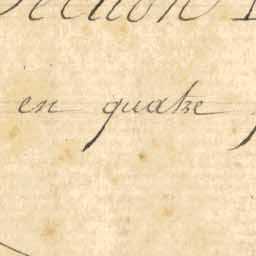 Section
en quatre